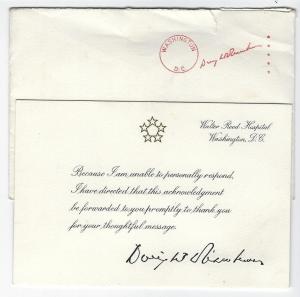 WASHINGTON
D.C.
Dwight D Eisenhower
Walter Reed Hospital
Washington, D.C.
Because I am unable to personally respond,
I have directed that this acknowledgment
be forwarded to you promptly to thank you
for your thoughtful message.
Dwight D Eisenhower